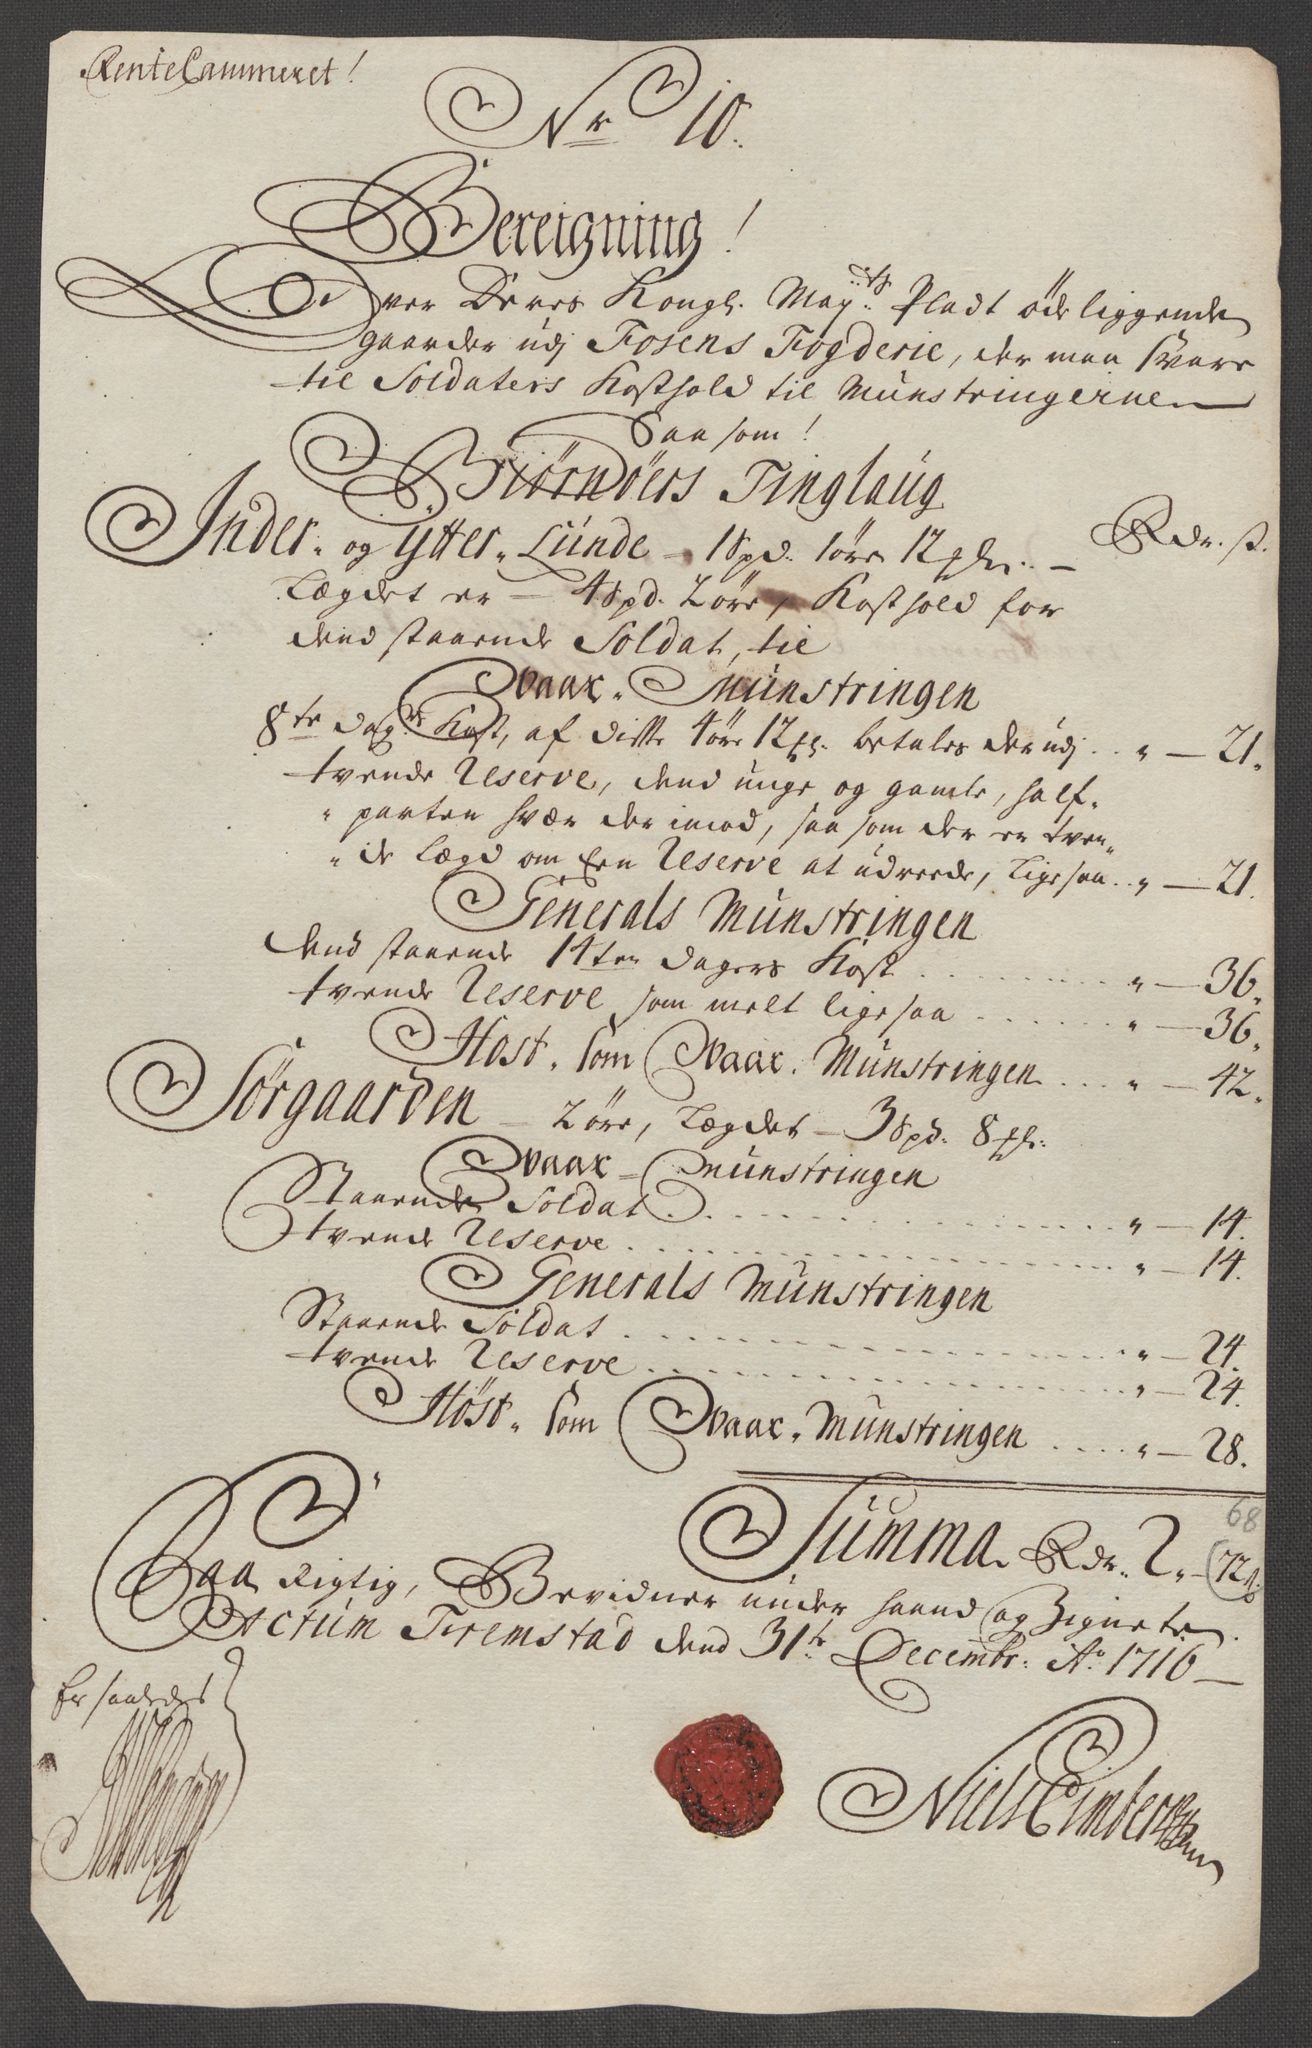 RenteCammeret!
Nr 10.
Bereigning!
Over Deres Kongl. May:ts Pladt öde liggende
gaarder udj Fosens Fogderie, der maa svare
til Soldaters Kosthold til Münstringerne
Saa som!
Biörnöers Tinglaüg
Rdr. s.
Inder. og ytter. Lünde - 1 Spd. 1 öre 12 ... -
Lægdet er - 4 Spd. 2 öre, Kosthold for
dend staaende Soldat, til
Vaar. Münstringen
8te dag:rs Kost, af disse 4 öre 12 ... betales der udj .. " - 21.
tvende Reserve, dend unge og gamle, half-
" parten hver der imod, saa som der er tven-
" de Lægd om Een Reserve at udreede, Ligesaa .. " - 21.
Generals Münstringen
dend staaende 14ten dagers Kost ........ " - 36.
tvende Reserve som melt ligesaa ...... " - 36.
Höst. som Vaar. Münstringen .... " - 42.
Sörgaarden - 2 öre, Lægdet - 3 Spd. 8 ...
Vaar - Münstringen
Staaende Soldat ........ " - 14.
tvende Reserve ........ " - 14.
Generals Münstringen
Staaende Soldat ........ " - 24.
tvende Reserve ........ " - 24.
Höst. som Vaar. Münstringen .... " - 28.
68
Summa Rdr. 2. - 72 s.
Saa Rigtig, Bevidner under haand og Zignete.
Actüm Fremstad dend 31te Decembr: Ao 1716 -
Er saaledes
Niels Eimbersen